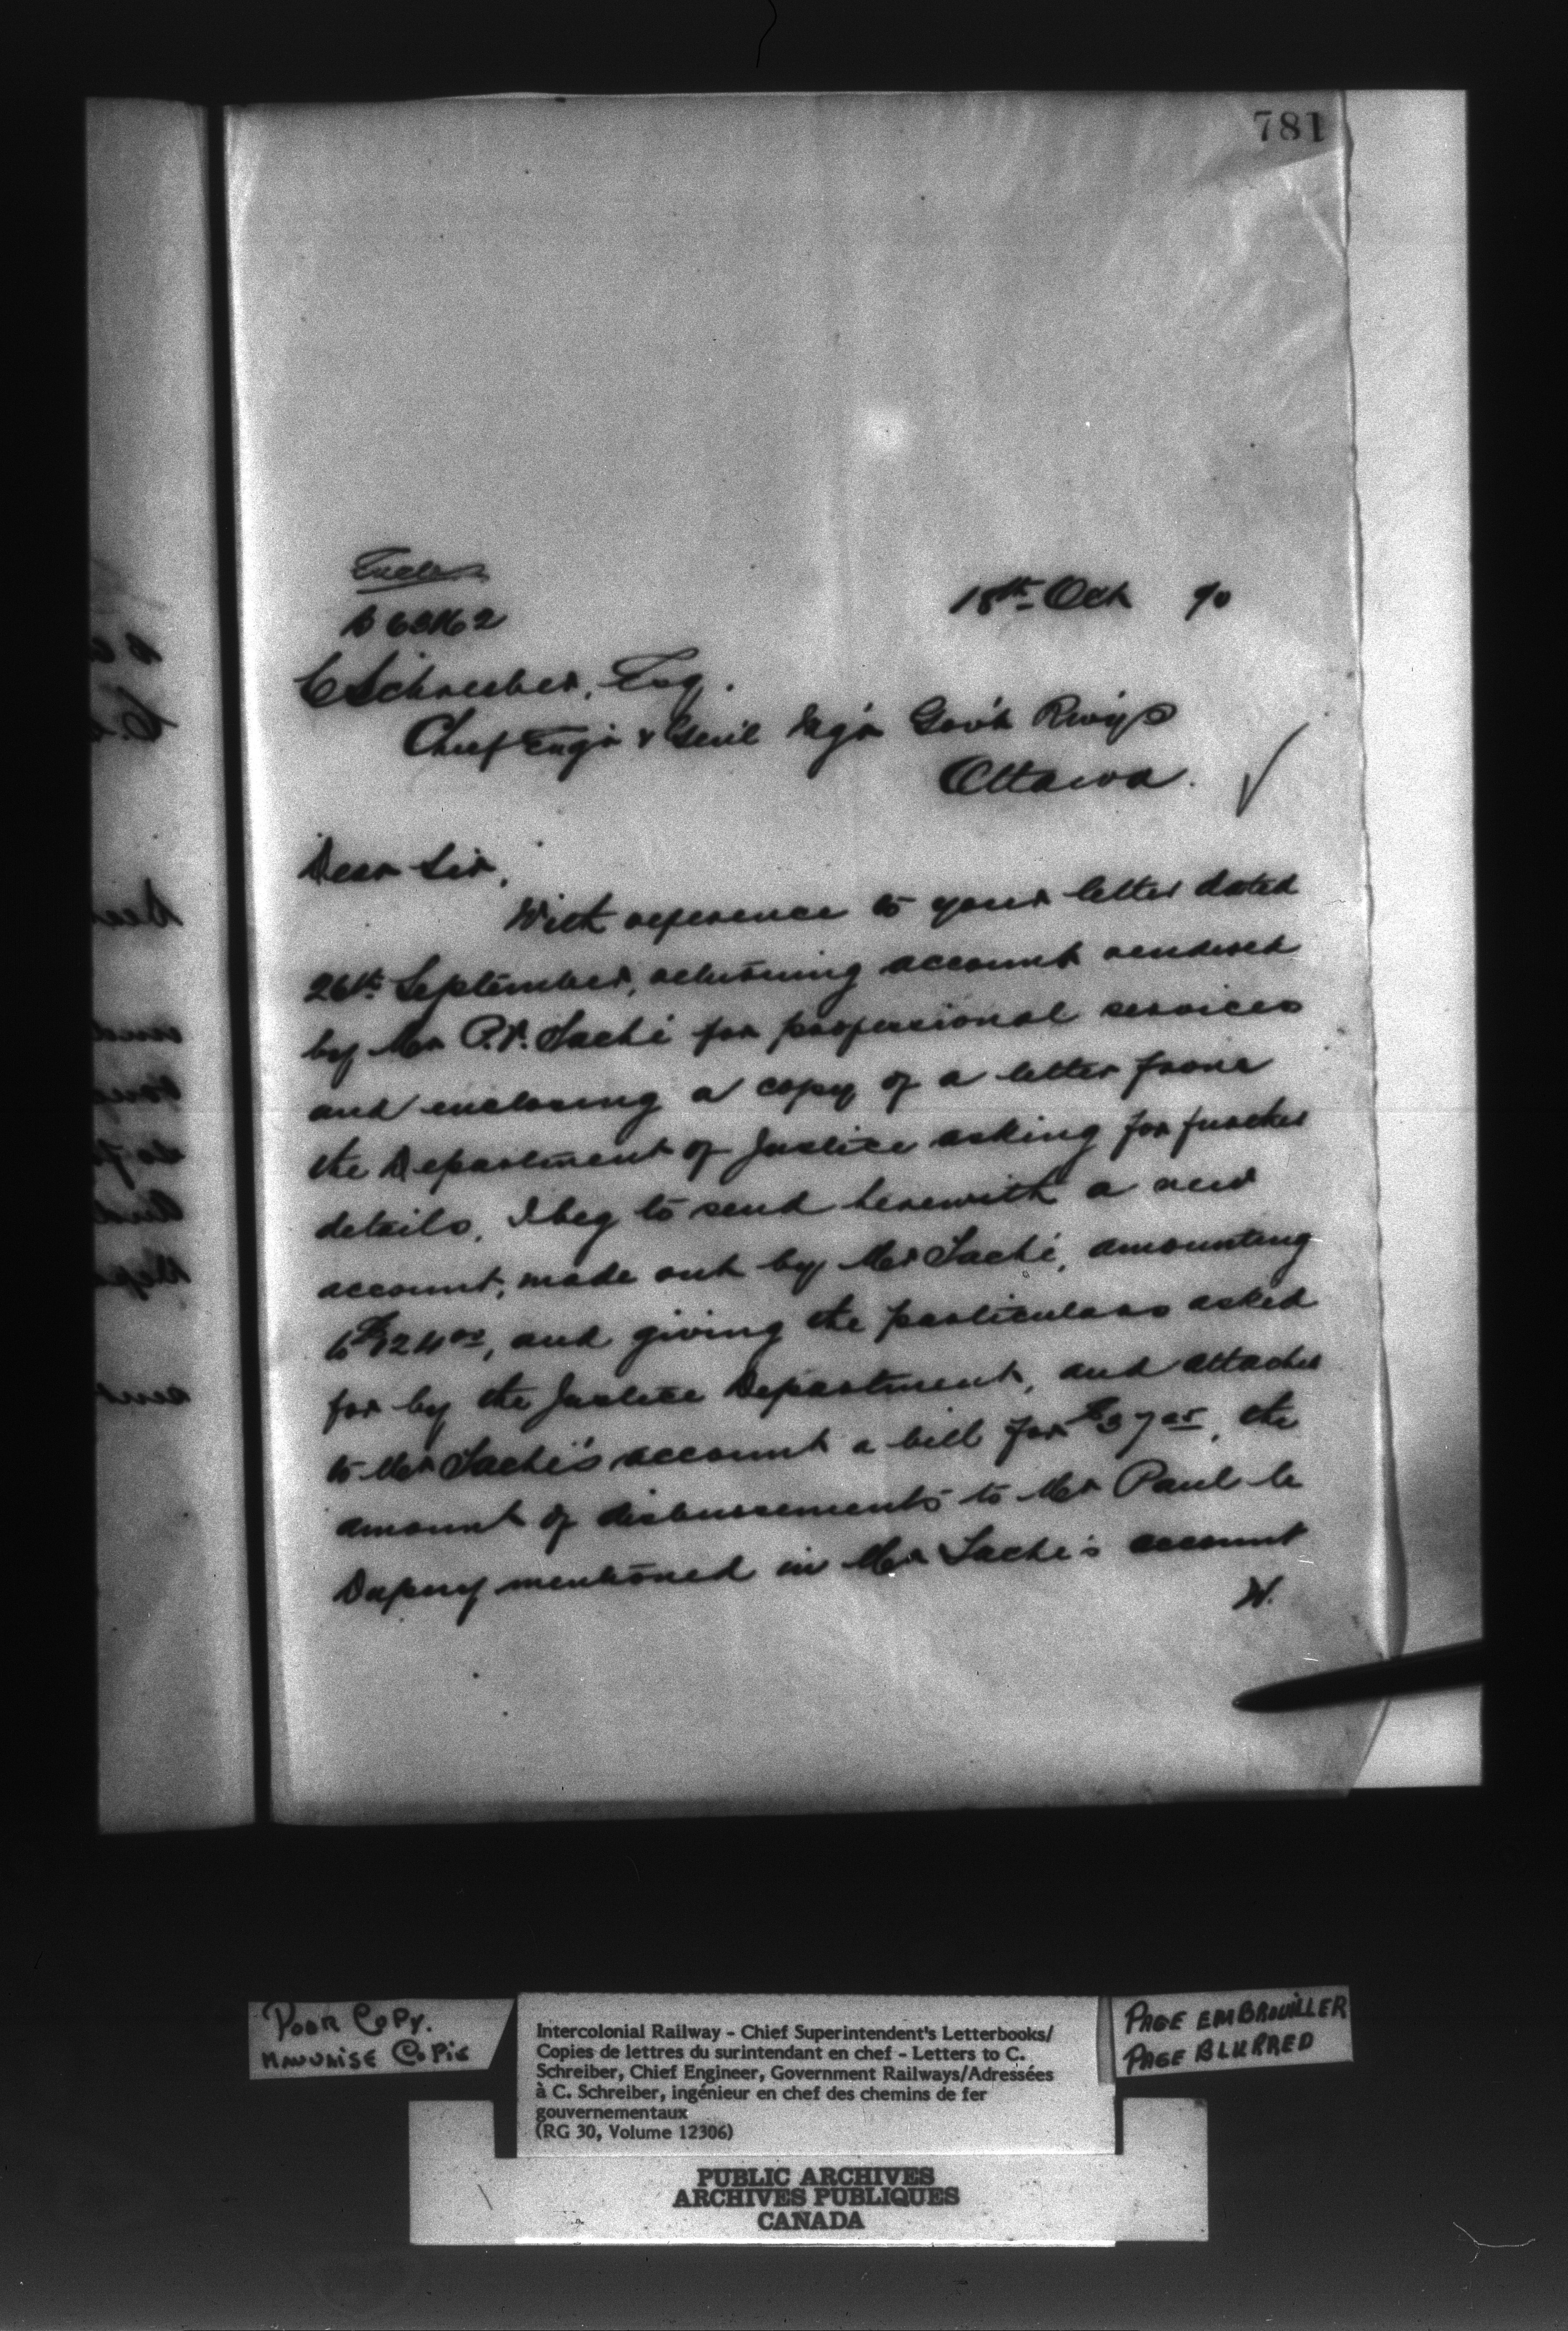 781
Encls
18th Oct 90
C Schreiber, Esq.
Chief Engr & Gen'l Mg'r Gov't Rwys
Ottawa.
Dear Sir,
With reference to your letter dated
26th September, returning account rendered
by Mr P.V. Taché for professional services
and enclosing a copy of a letter from
the Department of Justice asking for further
details, I beg to send herewith a new
account, made out by Mr Taché, amounting
to and giving the particulars asked
for by the Justice Department, and attached
to Mr Taché's account a bill for the
amount of disbursements to Mr Paul le
mentioned in Mr Taché's account
Poor Copy.
Mauvaise Copie
Intercolonial Railway - Chief Superintendent's Letterbooks/
Copies de lettres du surintendant en chef - Letters to C.
Schreiber, Chief Engineer, Government Railways/Adressées
à C. Schreiber, ingénieur en chef des chemins de fer
gouvernementaux
(RG 30, Volume 12306)
Page embrouiller
Page Blurred
PUBLIC ARCHIVES
ARCHIVES PUBLIQUES
CANADA